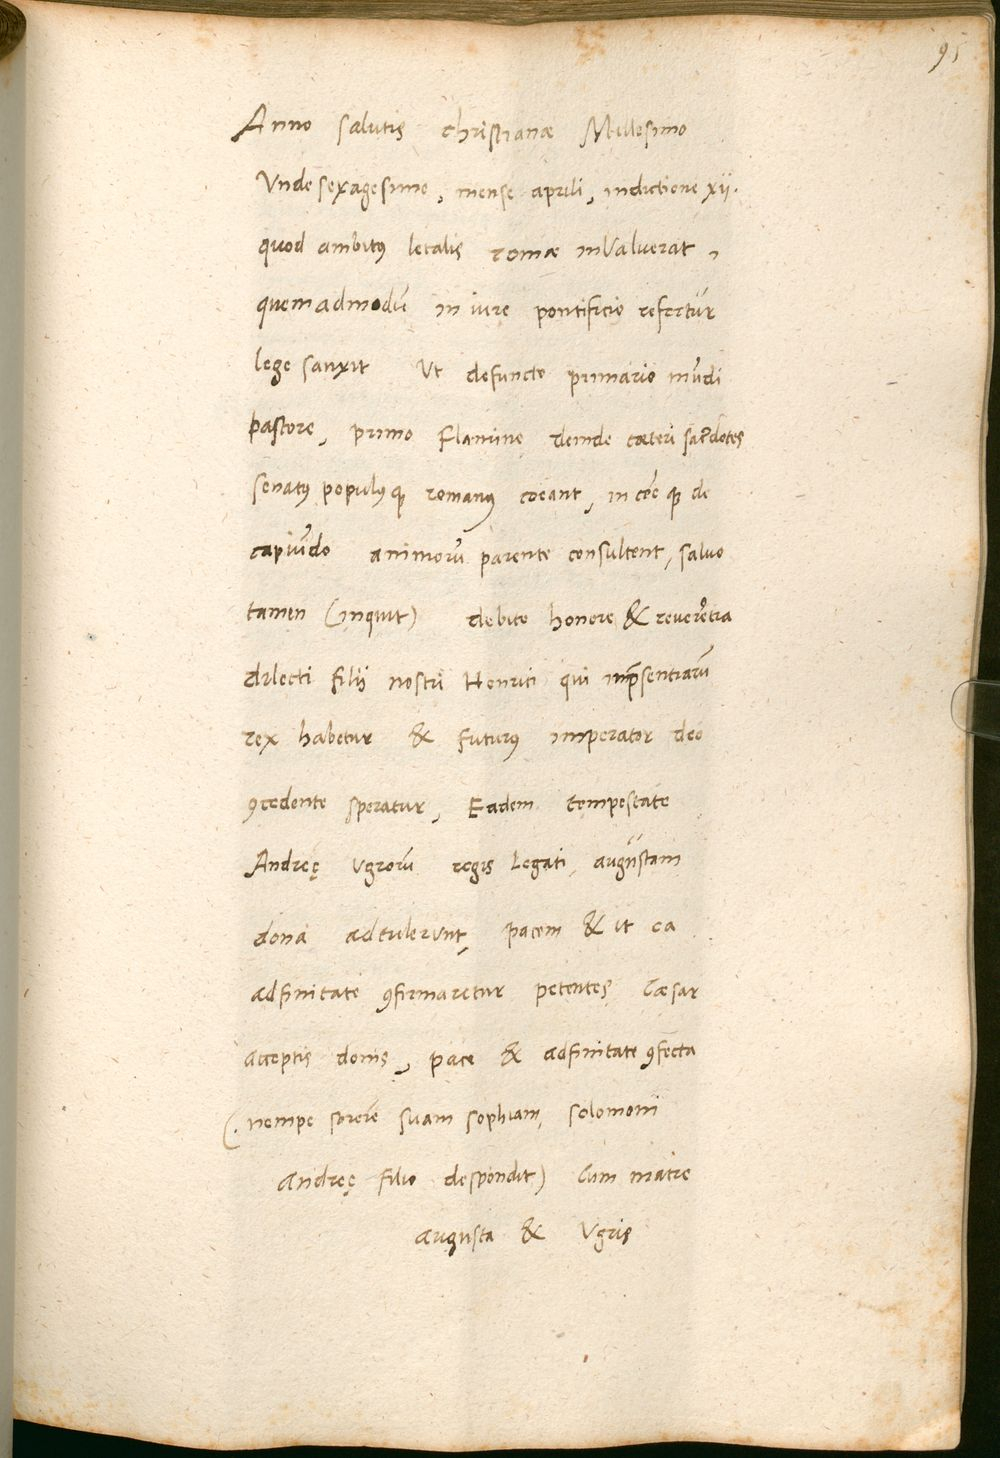 95
Anno salutis christianæ Millesimo
Vndesexagesimo, mense aprili, indictione xij.
quod ambitꝰ letalis romæ inValuerat,
quemadmodũ in iure pontificio refertur
lege sanxit Vt defuncto primario mũdi
pastore, primo Flamine deinde cæteri sac̃dotes
senatꝰ populꝰqꝫ romanꝰ coeant, in cõe qꝫ de
capiũdo animorũ parente consultent, salvo
tamen (inquit) debito honore & reverẽtia
dilecti filij nostri Henrici qui inp̃sentiarũ
rex habetur & futurꝰ imperator deo
ꝯcedente speratur, Eadem tempestate
Andreę Vgrorũ regis Legati, augustam
dona adtulerunt, pacem & ut ea
adfinitate ꝯfirmaretur petentes, Cæsar
acceptis donis, pace & adfinitate ꝯfecta
(. nempe sororẽ suam sophiam, solomoni
Andreę filio despondit) Cum matre
augusta & Vgris